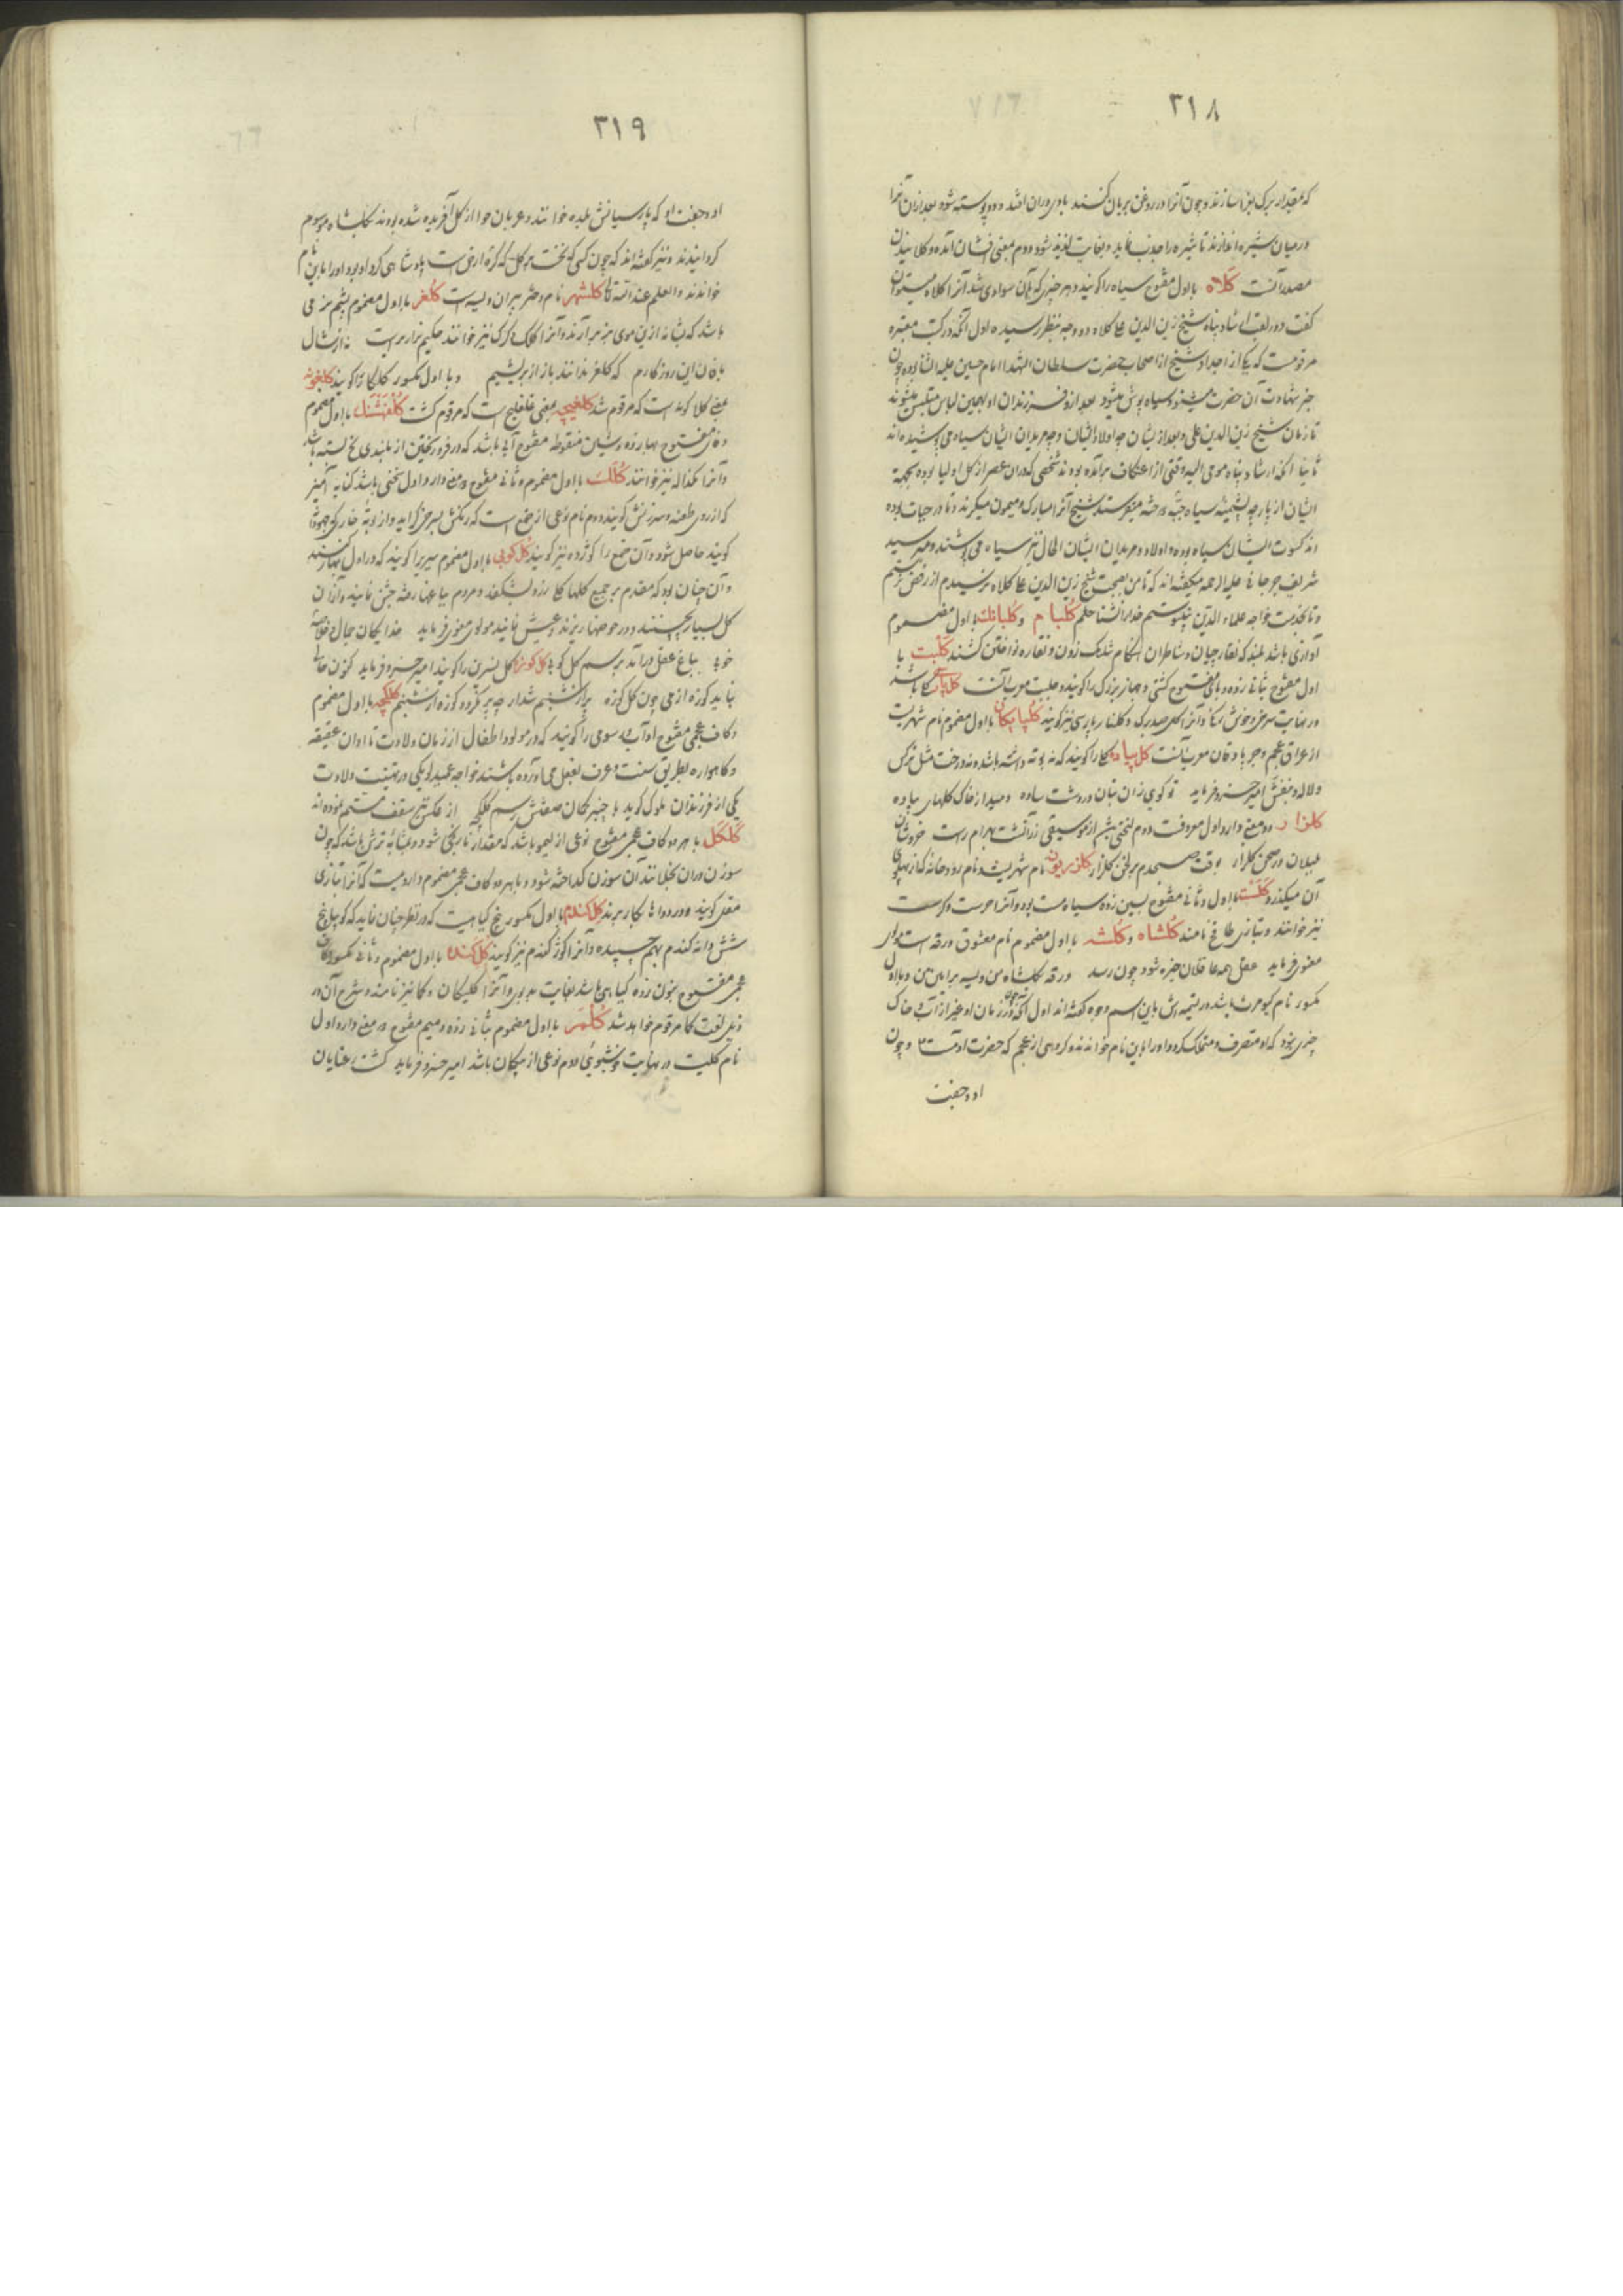 ۳۱۸
که بمقدار برک بزا سازند و چون آنرا در روغن بریان کنند بادی دران افتد و دو پوسته شود بعد ازان آنرا
در میان شیره اندازند تا شیره را جذب نماید و بغایت لذیذ شود دوم بمعنی افشان آمده و کلانیدن
مصدر آنست کلاه با اول مفتوح سیاه را کویند و هر چیزی که بآن سوادی شد آنرا کلاه میتوان
کفت و در لقب ارشاد پناه شیخ زین الدین علی کلاه دو وجه بنظر رسیده اول آنکه در کتب معتبره
مرقومست که یکی از اجداد شیخ از اصحاب حضرت سلطان الشهدا امام حسین علیه السلام بوده چون
خبر شهادت آن حضرت میشنود سیاه پوش میشود بعد ازو فرزندان او بهمین لباس متلبس میشوند
تا زمان شیخ زین الدین علی و بعد از یشان چه اولاد ایشان و چه مریدان ایشان سیاه می پوشیده اند
ثانیا آنکه ارشاد پناه مومی الیه وقتی از اعتکاف برآمده بودند شخصی که دران عصر از کل اولیا بوده بجهة
ایشان از پارچه پشمینه سیاه جبه میفرستد شیخ آنرا مبارک و میمون میکیرند و تا در حیات بوده
اند کسوت ایشان سیاه بوده و اولاد و مریدان ایشان الحال نیز سیاه می پوشند و میر سید
شریف جرجانی علیه الرحمه میکفته اند که تا من بصحبت شیخ زین الدین علی کلاه نرسیدم از رفض نرستم
و تا بخدمت خواجه علاء الدین نپیوستم خدا را نشناختم کلبام و کلبانک با اول مضموم
آوازی باشد بلند که نقارچیان و شاطران هنکام شلک زدن و نقاره نواختن کشند کلبت با
اول مفتوح بثانی زده و بای مفتوح کشتی و جهاز بزرک را کویند و جلبت معرب آنست کلپارسی کلی باشد
در نهایت سرخی و خوش رنک و آنرا کل صدبرک و کلنار پارسی نیز کویند کلپایکان با اول مضموم نام شهریست
از عراق عجم و جرباد قان معرب آنست کل پیاده کلی را کویند که نه بوته داشته باشد و نه درخت مثل نرکس
و لاله و بنفشه امیر خسرو فرماید تو کوی زان بتان در دشت ساده دمید از خاک کلهای پیاده
کلزار دو معنی دارد اول معروفست دوم لختی بیش از موسیقی زرآتشت بهرام راست خروشان
بلبلان در صحن کلزار بوقت صبحدم بر لحن کلزار کلزریون نام شهریست و نام رودخانه که از پهلوی
آن میکذرد کلست با اول و ثانی مفتوح بسین زده سیاه مست بود و آنرا
نیز خوانند و بتازی طافح نامند کلشاه و کلشه با اول مضموم نام معشوق ورقه است مولوی
معنوی فرماید عقل همه عاقلان خیره شود چون رسد ورقه بکلشاه من ویسه برامین من و با اول
مکسور نام کیومرث باشد در تسمیه اش باین اسم وجوه کفته اند اول آنکه چون در زمان او غیر از آب و خاک
چیزی نبود که او متصرف و متملک کردد او را باین نام خواندند و کروهی از عجم که حضرت آدمست و چون
او و جفت
۳۱۹
او و جفت او که پارسیانش بلده خوانند و عربان حوا از کل آفریده شده بودند بکلشاه موسوم
کردانیدند و نیز کفته اند که چون کسی که نخست بر کل که کره ارض است پادشاهی کرد او بود او را باین نام
خواندند والعلم عند الله تعالی کلشهر نام دختر پیران ویسه است کلغر با اول مضموم پشم نرمی
باشد که بشانه از بن موی بز برآرند و آنرا کلک و کرک نیز خوانند حکیم نزاری راست نه ازنشال
بافان این روزکارم که کلغر ندانند باز از بریشم و با اول مکسور کلکار را کویند کلغونه
بمعنی کلاکونه است که مرقوم شد کلغیچه بمعنی غلغلیج است که مرقوم کشت کلفشنک با اول مضموم
و فای مفتوح بهازده و شین منقوطه مفتوح آبی باشد که در فرو ریختن از بلندی یخ بسته باشد
و آنرا کنداله نیز خوانند کلک با اول مضموم و ثانی مفتوح دو معنی دارد اول سخنی باشد کنایه آمیز
که از روی طعنه و سرزنش کویند دوم نام نوعی از صمغ است که رنکش بسرخی کراید و از بوته خاری که جهودانه
کویند حاصل شود و آن صمغ را کوژده نیز کویند کل کوبی با اول مضموم سیری را کویند که در اول بهار کنند
و آن چنان بود که مقدم بر جمیع کلها کلی زرد بشکفد و مردم بباغها رفته جشن نمایند و ازان
کل بسیار بچینند و در حوضها ریزند و عیش نمایند مولوی معنوی فرماید خدایکان جمال و خلاصه
خوبی بباغ عقل درآمد برسم کل کوبی کل کوزه کل نسرین را کویند امیر خسرو فرماید کنون خالی
نباید کوزه از می چون کل کوزه پر از شبنم شد ار چه پر نکردد کوزه از شبنم کلکچه با اول مضموم
و کاف عجمی مفتوح آداب و رسومی را کویند که در مولود اطفال از زمان ولادت تا اوان عقیقه
و کاهواره بطریق سنت و عرف بفعل می آورده باشند خواجه عمید لویکی در تهنیت ولادت
یکی از فرزندان ملوک کوید با چنبر کمان صفتش رسم کلکچه از عکس تیغ سقف منقش نموده اند
کلکل با هر دو کاف عجمی مفتوح نوعی از لیمو باشد که مقدار نارنجی شود و بمثابه ترش باشد که چون
سوزن دران بخلانند آن سوزن کداخته شود و با هر دو کاف عجمی مضموم داروییست که آنرا بتازی
مقل کویند و در دواها بکار برند کل کندم با اول مکسور بیخ کیاهیست که در نظر چنان نماید که کویا پنج
شش دانه کندم بهم چسپیده و آنرا کوز کندم نیز کویند کل کنده با اول مضموم و ثانی مکسور و کاف
عجمی مفتوح بنون زده کیاهی باشد بغایت بدبوی و آنرا کلیکان و کما نیز نامند و شرح آن در
ذیل لغت کما مرقوم خواهد شد کلمر با اول مضموم بثانی زده و میم مفتوح دو معنی دارد اول
نام کلیست در نهایت خوشبوی دوم نوعی از پیکان باشد امیر خسرو فرماید کشت عنایان